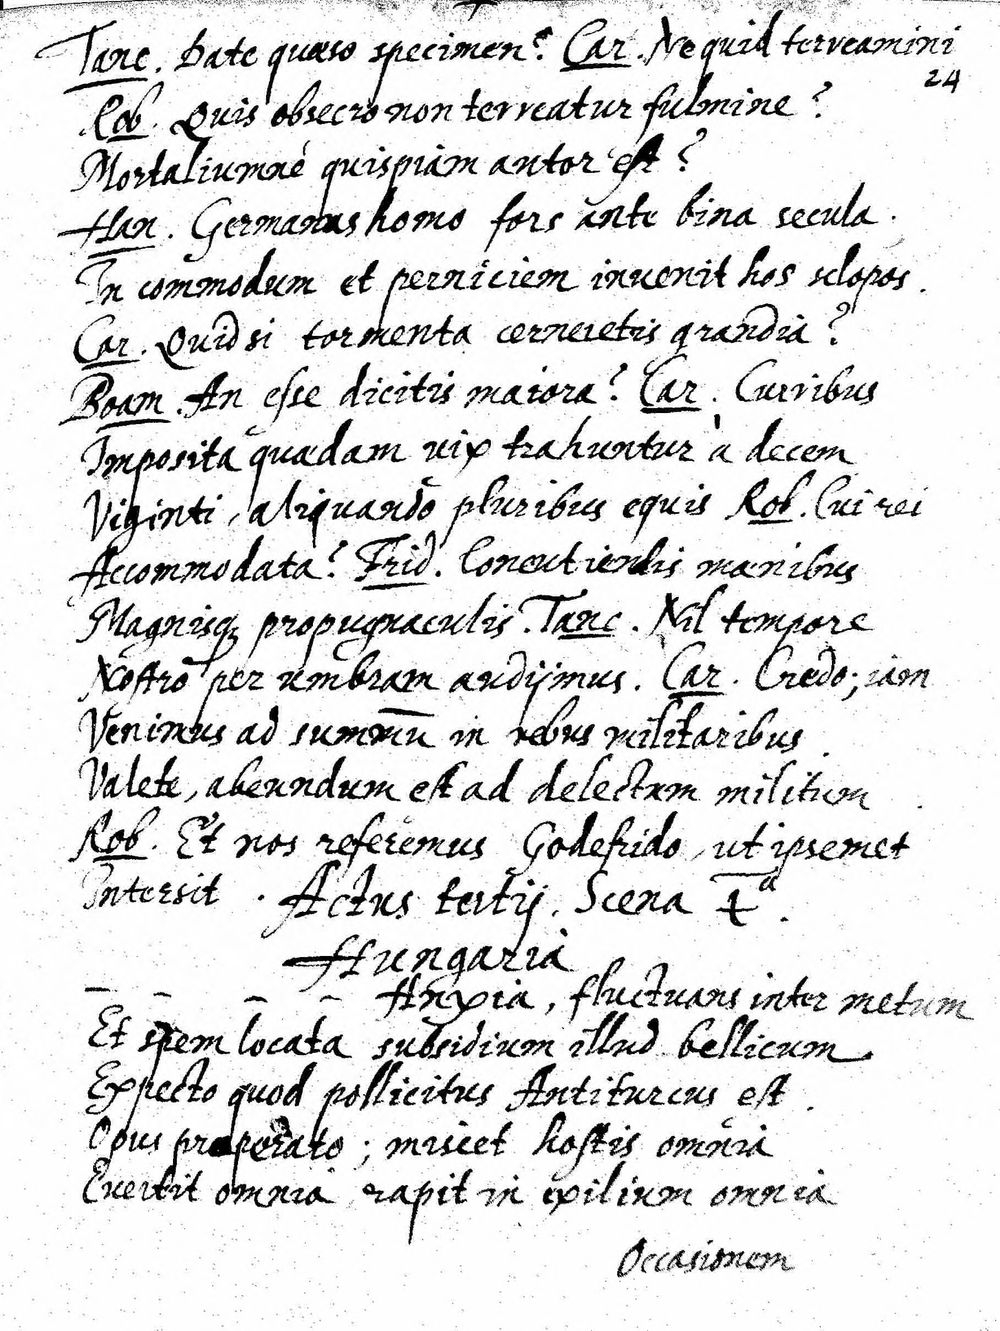 Tanc. Date quæso specimen? Car. Ne quid terreamini
24
Rob. Quis obsecro non terreatur fulmine?
Mortaliumne quispiam autor est?
Han. Germanus homo fors ante bina secula.
In commodum et perniciem inuenit hos sclopos.
Car. Quid si tormenta cerneretis grandia?
Boam. An esse dicitis maiora? Car. Curribus
Imposita quædam uix trahuntur à decem
Viginti, aliquando pluribus equis Rob. Cui rei
Accommodata? Frid. Concutiendis mænibus
Magnisq; propugnaculis. Tanc. Nil tempore
Nostro per umbram audijmus. Car. Credo; iam
Venimus ad summū in rebus militaribus.
Valete, abeundum est ad delectum militum.
Rob. Et nos referemus Godefrido, ut ipsemet
Intersit. Actus tertij. Scena 4ª.
Hungaria
Anxia, fluctuans inter metum
Et spem locata subsidium illud bellicum
Expecto quod pollicitus Antiturcus est.
Opus properato; miscet hostis omnia
Euertit omnia rapit in exilium omnia
Occasionem